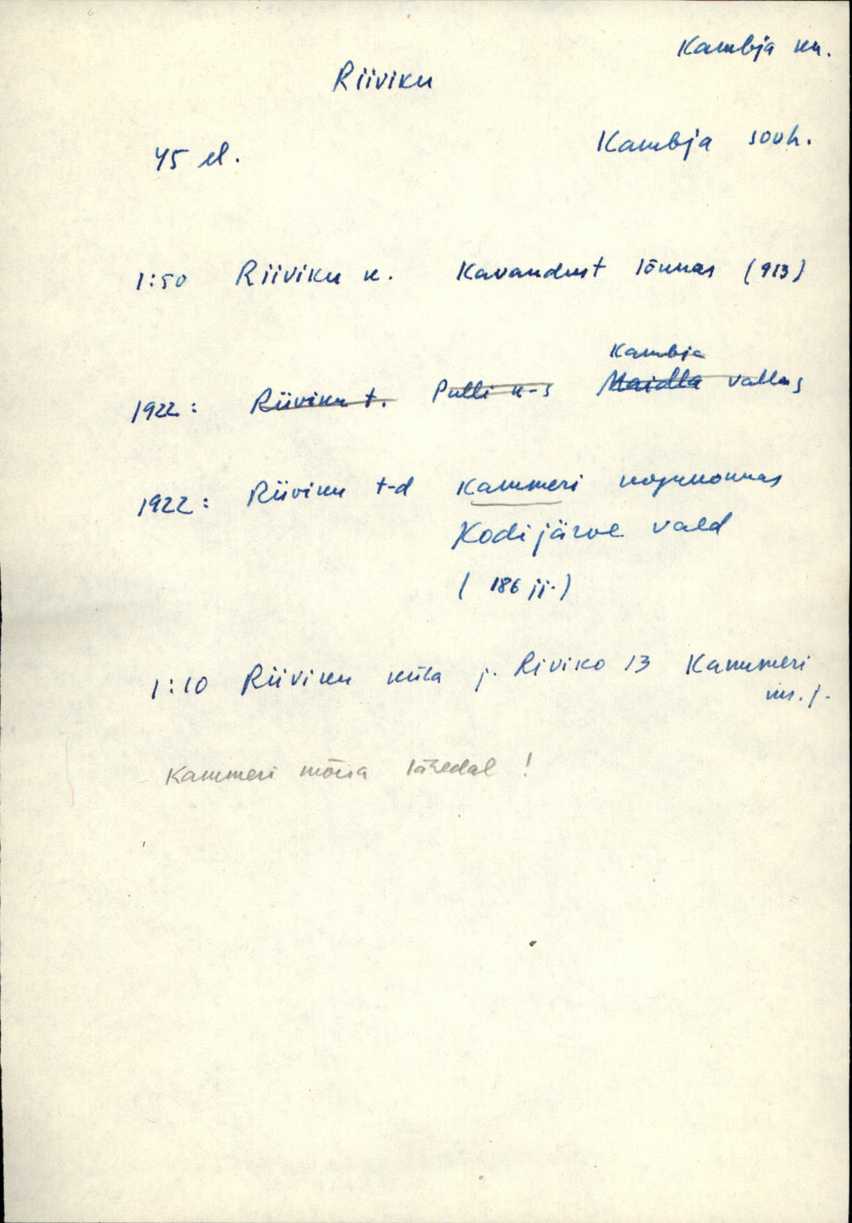 Kambja kn.
Riiviku
45 el.
Kambja sovh.
1:50 Riiviku k. Kavandust lõunas (913)
Kambja
1922: Riiviku t. Pulli k-s Maidla vallas
1922: Riiviku t-d Kammeri kogukonnas
Kodijärve vald
(186 jj.)
1:10 Riiviku küla j. Riviko 13 Kammeri
ms. j.
Kammeri mõisa lähedal!